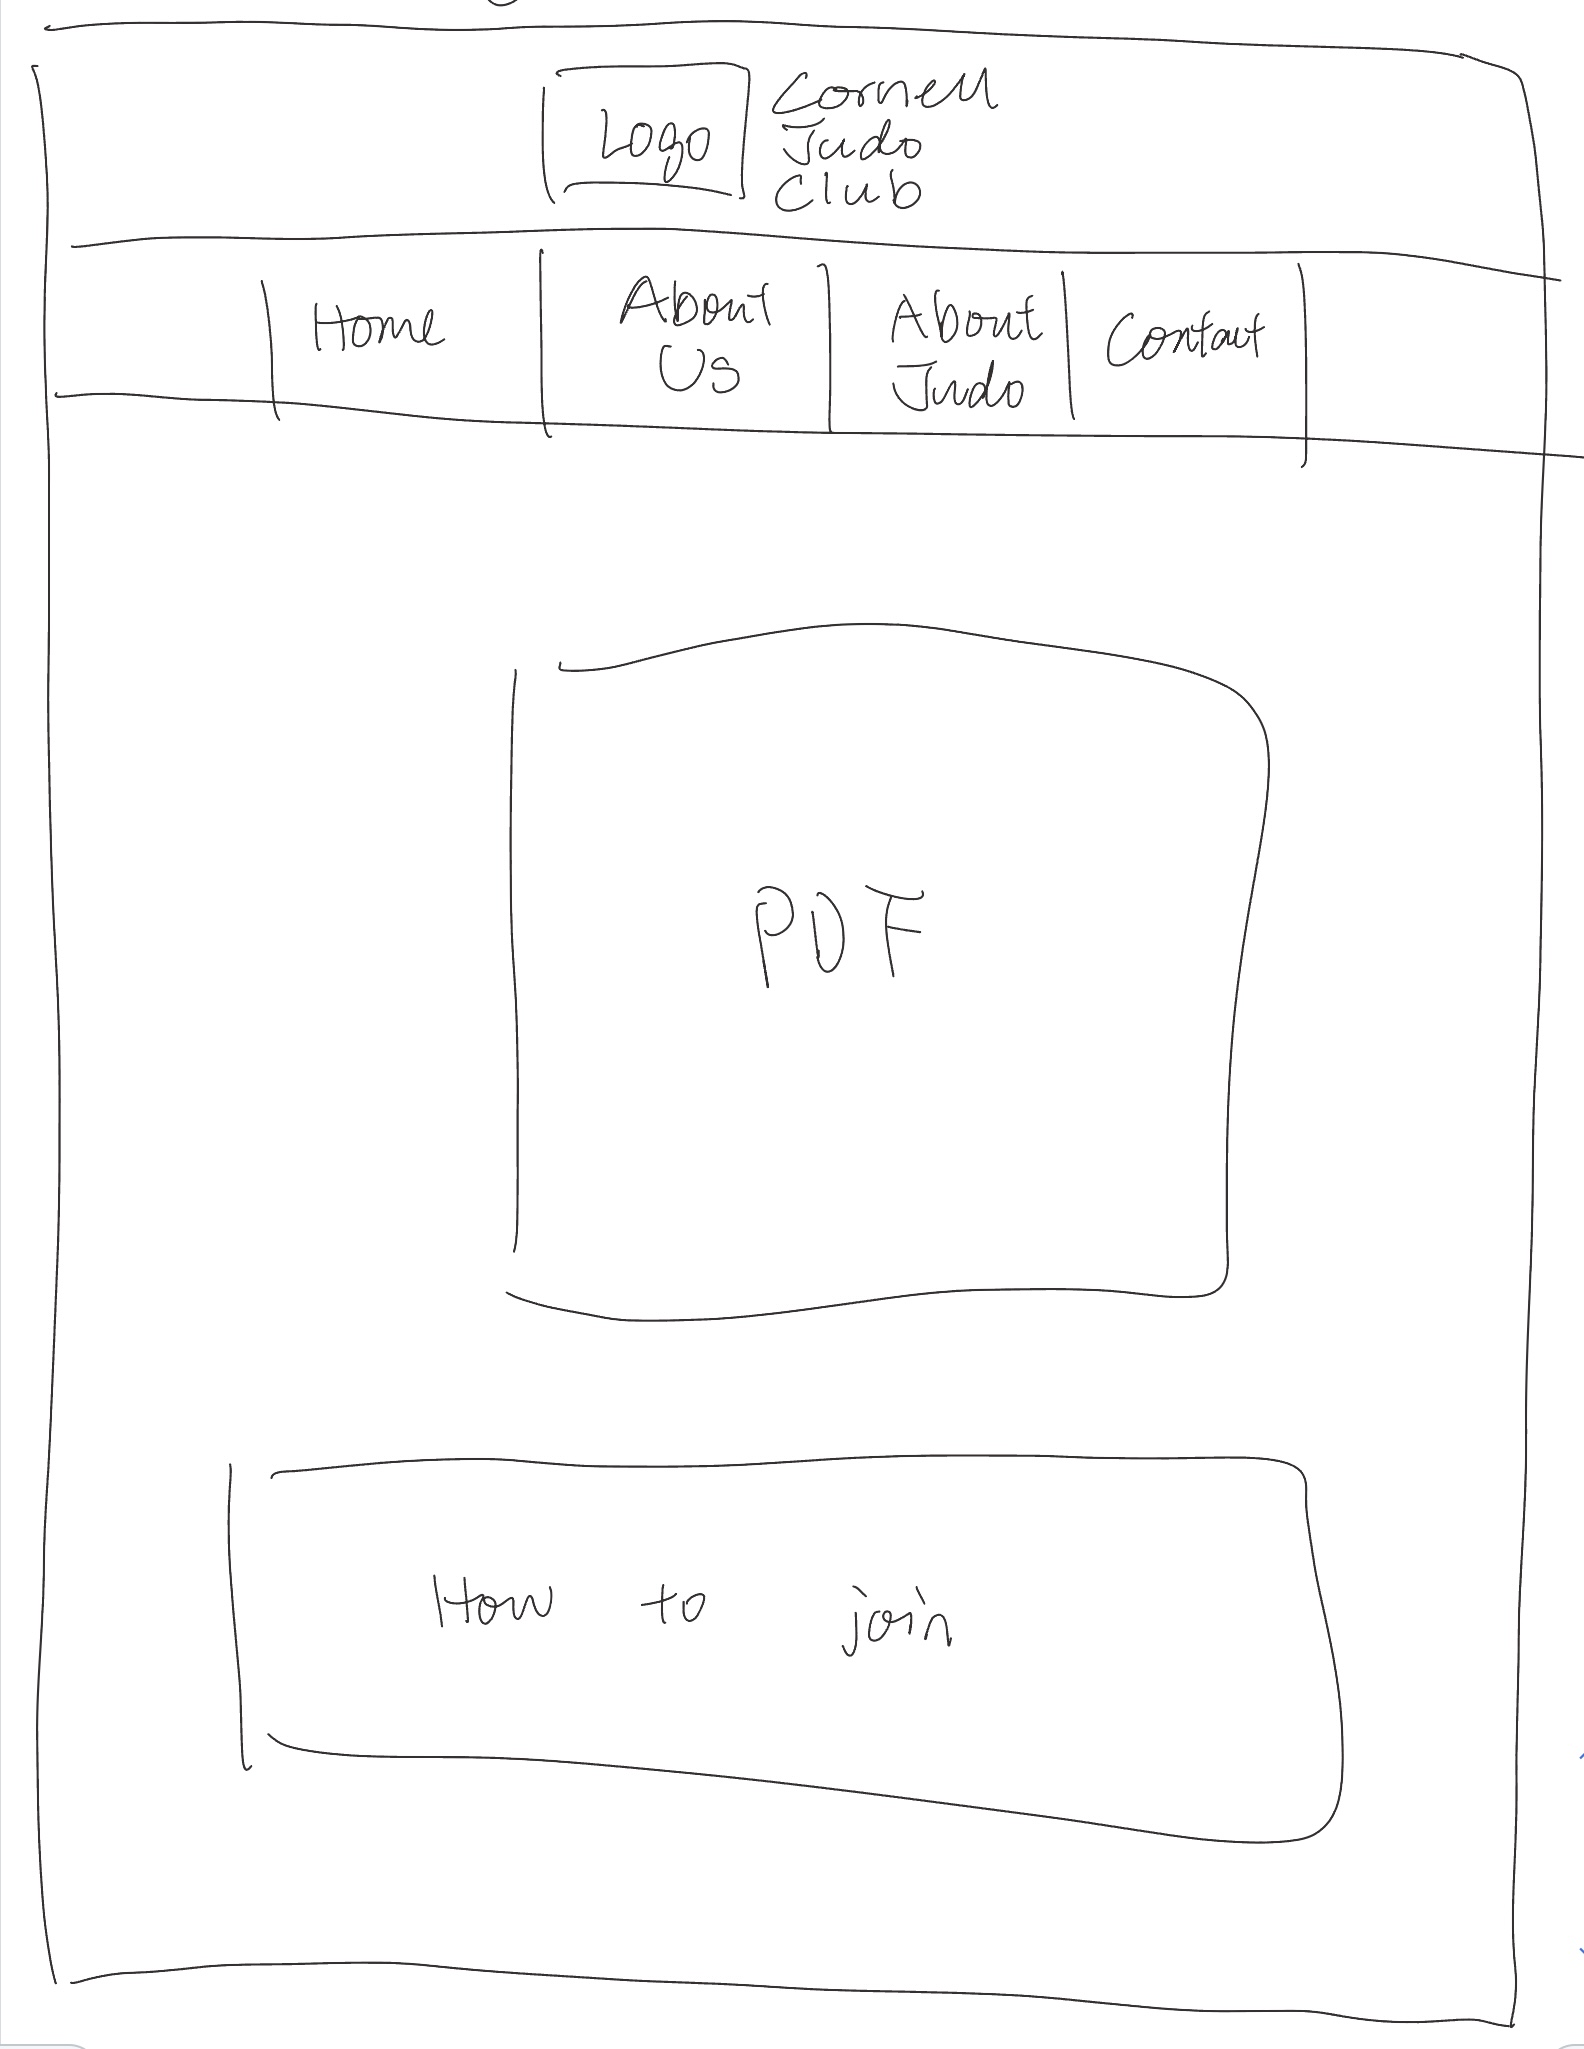 Logo
Cornell
Judo
Club
Home
About
Us
About
Judo
Contact
PDF
How to join